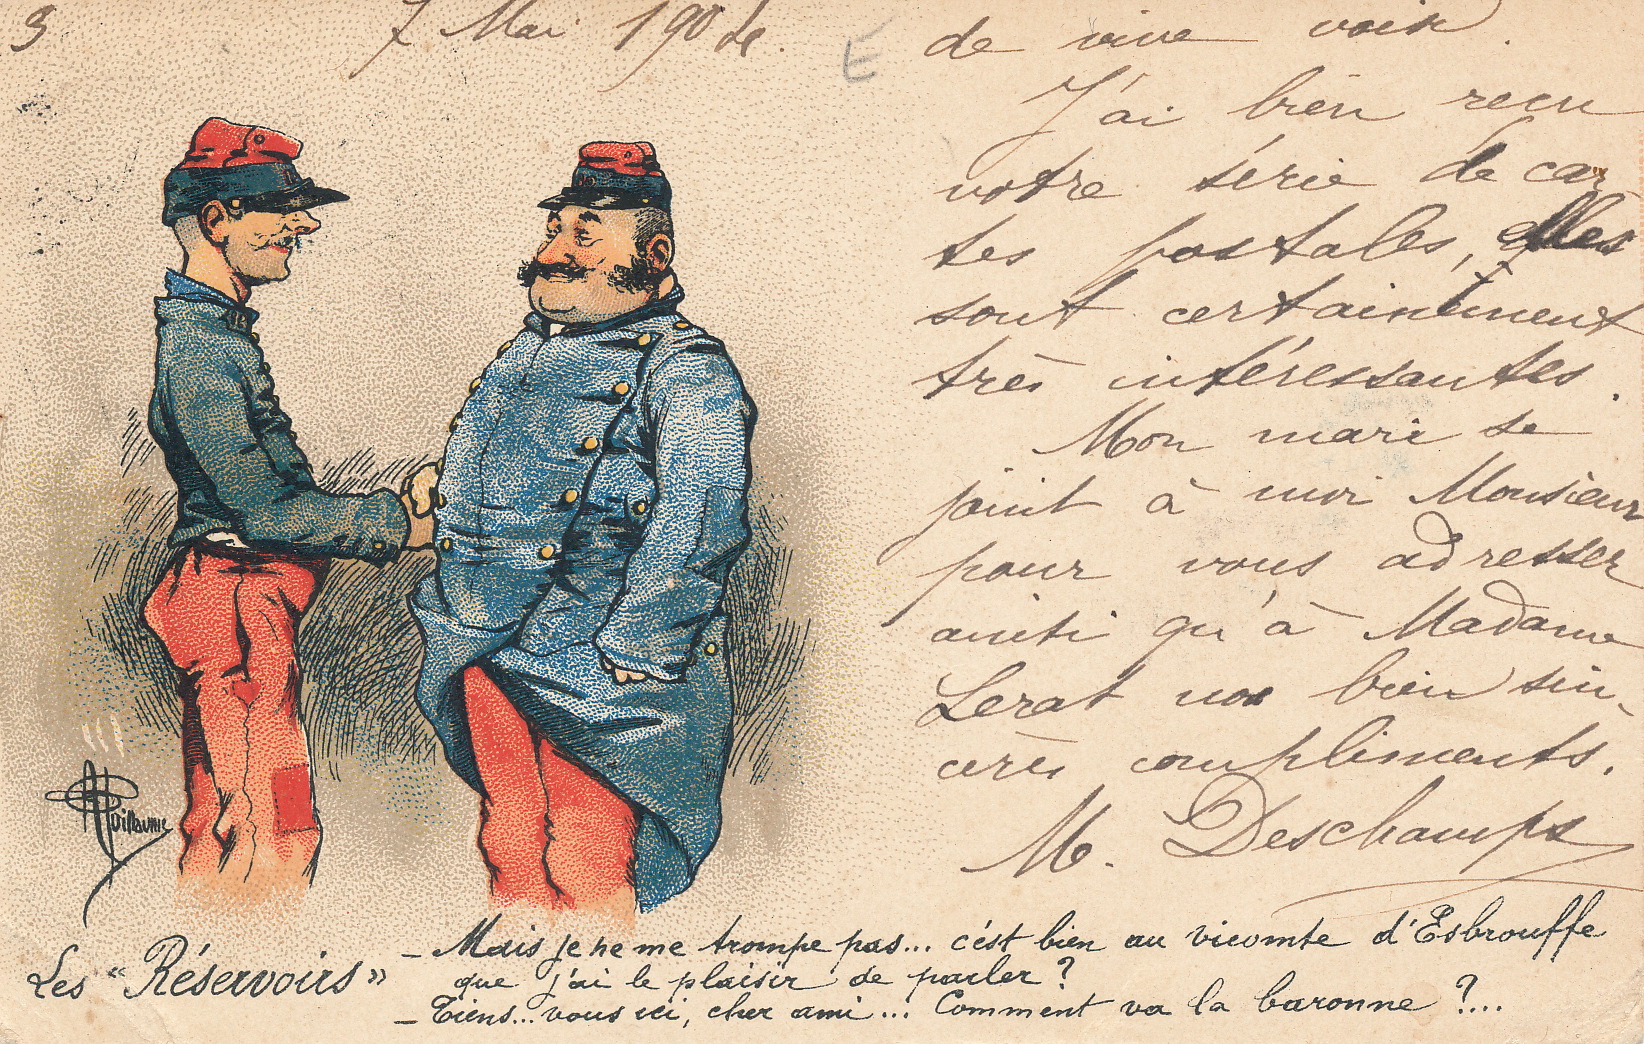 3
7 Mai 190
E
de vive voix.
J'ai bien reçu
votre série de car
tes postales, elles
sont certainement
très intéressantes.
Mon mari se
joint à moi Monsieur
pour vous adresser
ainsi qu'à Madame
Lerat nos bien sin-
cères compliments.
M. Deschamps
AGuillaume
Les "Réservoirs"
– Mais je ne me trompe pas... c'est bien au vicomte d'Esbrouffe
que j'ai le plaisir de parler ?
– Tiens... vous ici, cher ami... Comment va la baronne ?...